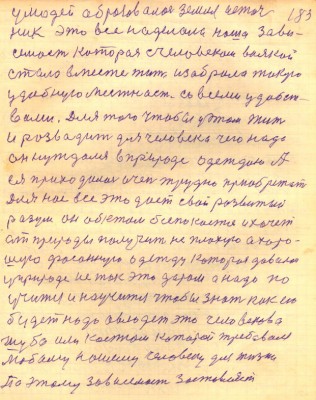 у людей образовался земля источ 183
ник это все наделала наша зави-
симост которая с человеком всякой
стала вместе жит избрала такую
удобную местност. со всеми удобст-
вами. Для того чтобы у этом жит
и розводит для человека чего надо
он нуждался в природе одеждою А
ея приходилос очен трудно приобретат
Для нас все это дает свой розвитый
розум он об этом беспокоется и хочет
от природы получит не плохую а хоро-
шую фасонную одежду которая давала
у природе не так это даром а надо по
учится и научится чтобы знат как
будет надо овладет это человекова
шуба или костюм которой требовался
любому нашему человеку для жизни
По этому зависимост заставляет